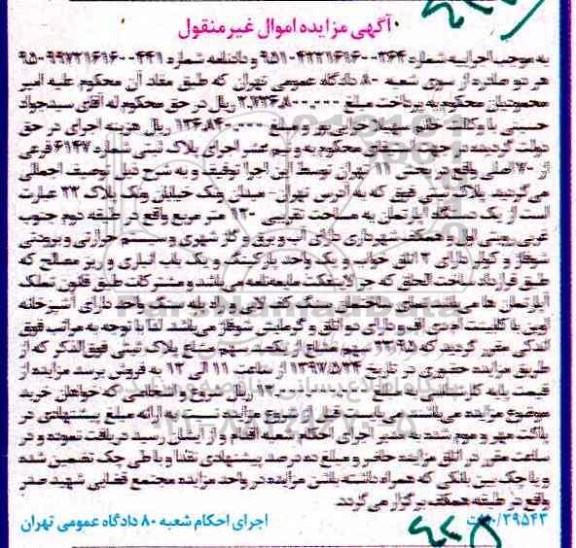 آگهی مزایده اموال غیر منقول
به موجب اجراییه شماره ۹۵۱۰۴۲۲۱۶۱۶۰۰۳۶۴ و دادنامه شماره ۹۵۰۹۹۷۲۱۶۱۶۰۰۴۴۱
هر دو صادره از سوی شعبه ۸۰ دادگاه عمومی تهران که طبق مفاد آن محکوم علیه امیر
محمودیان محکوم به پرداخت مبلغ ۲,۷۳۶,۸۰۰,۰۰۰ ریال در حق محکوم له آقای سیدجواد
حسینی با وکالت خانم سهیلا چراغی پور و مبلغ ۱۳۶,۸۴۰,۰۰۰ ریال هزینه اجرای در حق
دولت گردیده در جهت استیفای محکوم به و نیم عشر اجرای پلاک ثبتی شماره ۶۱۴۷ فرعی
از ۷۰ اصلی واقع در بخش ۱۱ تهران توسط این اجرا توقیف و به شرح ذیل توصیف اجمالی
می گردید. پلاک ثبتی فوق که به آدرس تهران - میدان ونک خیابان ونک پلاک ۲۲ عبارت
است از یک دستگاه آپارتمان به مساحت تقریبی ۱۲۰ متر مربع واقع در طبقه دوم جنوب
غربی روی اول و همکف شهرداری دارای آب و برق و گاز شهری و سیستم حرارتی و برودتی
شوفاژ و کولر دارای ۲ اتاق خواب و یک واحد پارکینگ و یک باب انباری و ریز مصالح که
طبق قرارداد ساخت الحاق که جز لاینفک مبایعه نامه می باشد و مشترکات طبق قانون تملک
آپارتمان ها می باشد نمای ساختمان سنگ کف لابی و راه پله سنگ واحد دارای آشپزخانه
اوپن با کابینت ام دی اف و دارای دو اتاق و گرمایش شوفاژ می باشد. لذا با توجه به مراتب فوق
اندکی مقرر گردید که ۲۳.۹۵ سهم مشاع از یکصد سهم مشاع پلاک ثبتی فوق الذکر که از
طریق مزایده حضوری در تاریخ ۱۳۹۷/۵/۲۴ از ساعت ۱۱ الی ۱۲ به فروش برسد مزایده از
قیمت پایه کارشناسی به مبلغ ریال شروع و اشخاصی که خواهان خرید
موضوع مزایده می باشند می بایست قبل از شروع مزایده نسبت به ارائه مبلغ پیشنهادی در
پاکت مهر و موم شده به مدیر اجرای احکام شعبه اقدام و از ایشان رسید دریافت نموده و در
ساعت مقرر در اتاق مزایده حاضر و مبلغ ده درصد پیشنهادی نقدا و یا طی چک تضمین شده
و یا چک بین بانکی که همراه داشته باشن مزایده در واحد مزایده مجتمع قضایی شهید صدر
واقع در طبقه همکف برگزار می گردد.
اجرای احکام شعبه ۸۰ دادگاه عمومی تهران